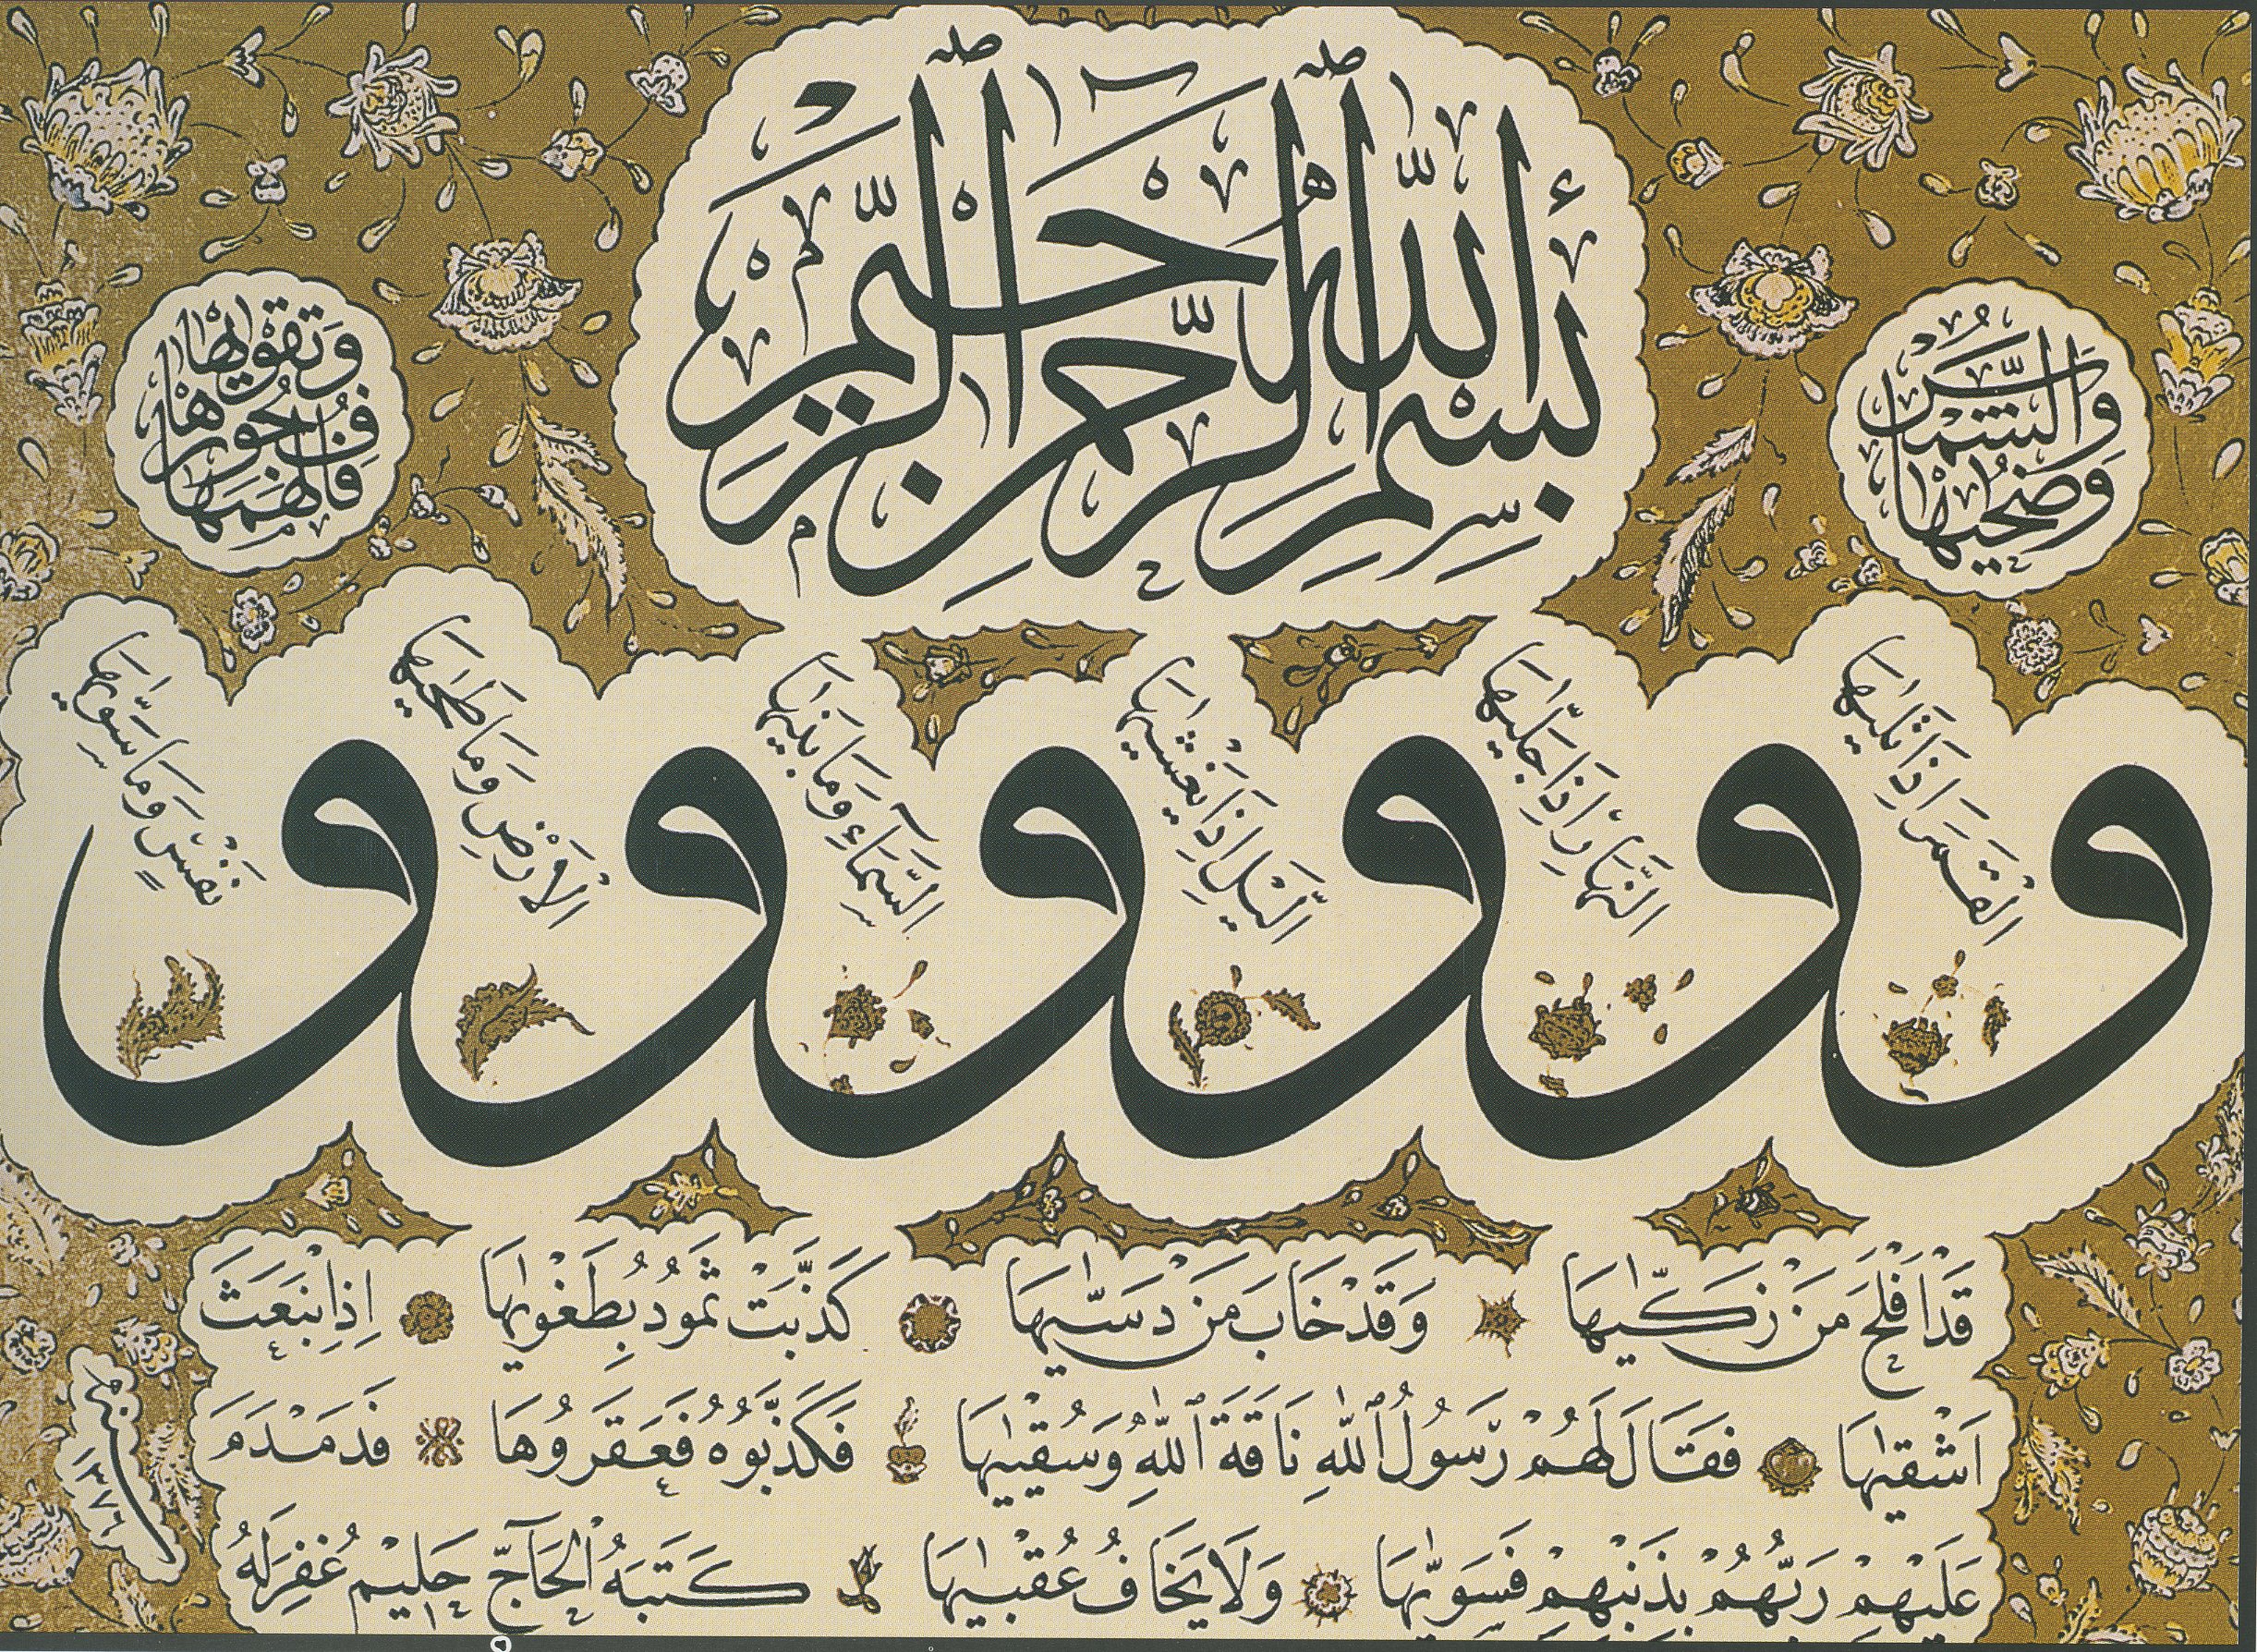 بِسْمِ اللّٰهِ الرَّحْمٰنِ الرَّحِيمِ
وَالشَّمْسِ وَضُحٰيهَا
وَ الْقَمَرِ اِذَا تَلٰيهَا
وَ النَّهَارِ اِذَا جَلّٰيهَا
وَ الَّيْلِ اِذَا يَغْشٰيهَا
وَ السَّمَاءِ وَمَا بَنٰيهَا
وَ الْاَرْضِ وَمَا طَحٰيهَا
وَ نَفْسٍ وَمَا سَوّٰيهَا
فَاَلْهَمَهَا فُجُورَهَا وَتَقْوٰيهَا
قَدْ اَفْلَحَ مَنْ زَكّٰيهَا وَقَدْ خَابَ مَنْ دَسّٰيهَا كَذَّبَتْ ثَمُودُ بِطَغْوٰيهَا اِذِ انْبَعَثَ
اَشْقٰيهَا فَقَالَ لَهُمْ رَسُولُ اللّٰهِ نَاقَةَ اللّٰهِ وَسُقْيٰيهَا فَكَذَّبُوهُ فَعَقَرُوهَا فَدَمْدَمَ
عَلَيْهِمْ رَبُّهُمْ بِذَنْبِهِمْ فَسَوّٰيهَا وَلَا يَخَافُ عُقْبٰيهَا كَتَبَهُ الْحَاجّ حَلِيم غُفِرَلَهُ
سنه ١٣٧٦